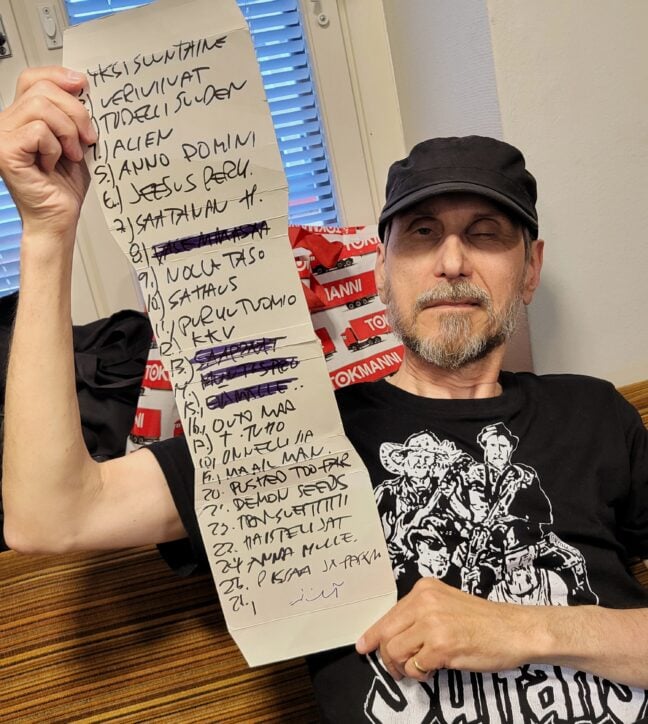 YKSISUUNTAINE
VERIVIIVAT
TODELLISUUDEN
ALIEN
5.) ANNO DOMINI
6.) JEESUS PERK.
7.) SAATANAN H.
8.)
9. NOLLATASO
10. SATTAUS
PURUUTUOMIO
KKV
13.
15.
16. OUTO MAA
17) T. TUTTO
ONNELLISIA
19. MAAILMAN.
20. PUSHED TOO FAR
21. DEMON SEEDS
TONSUETTTTTI
22. HAISTELIJAT
24 ANNA MULLE.
PASKAA JA
TOKMANNI
MANNI
TOK
TOKMANNI
Sultans